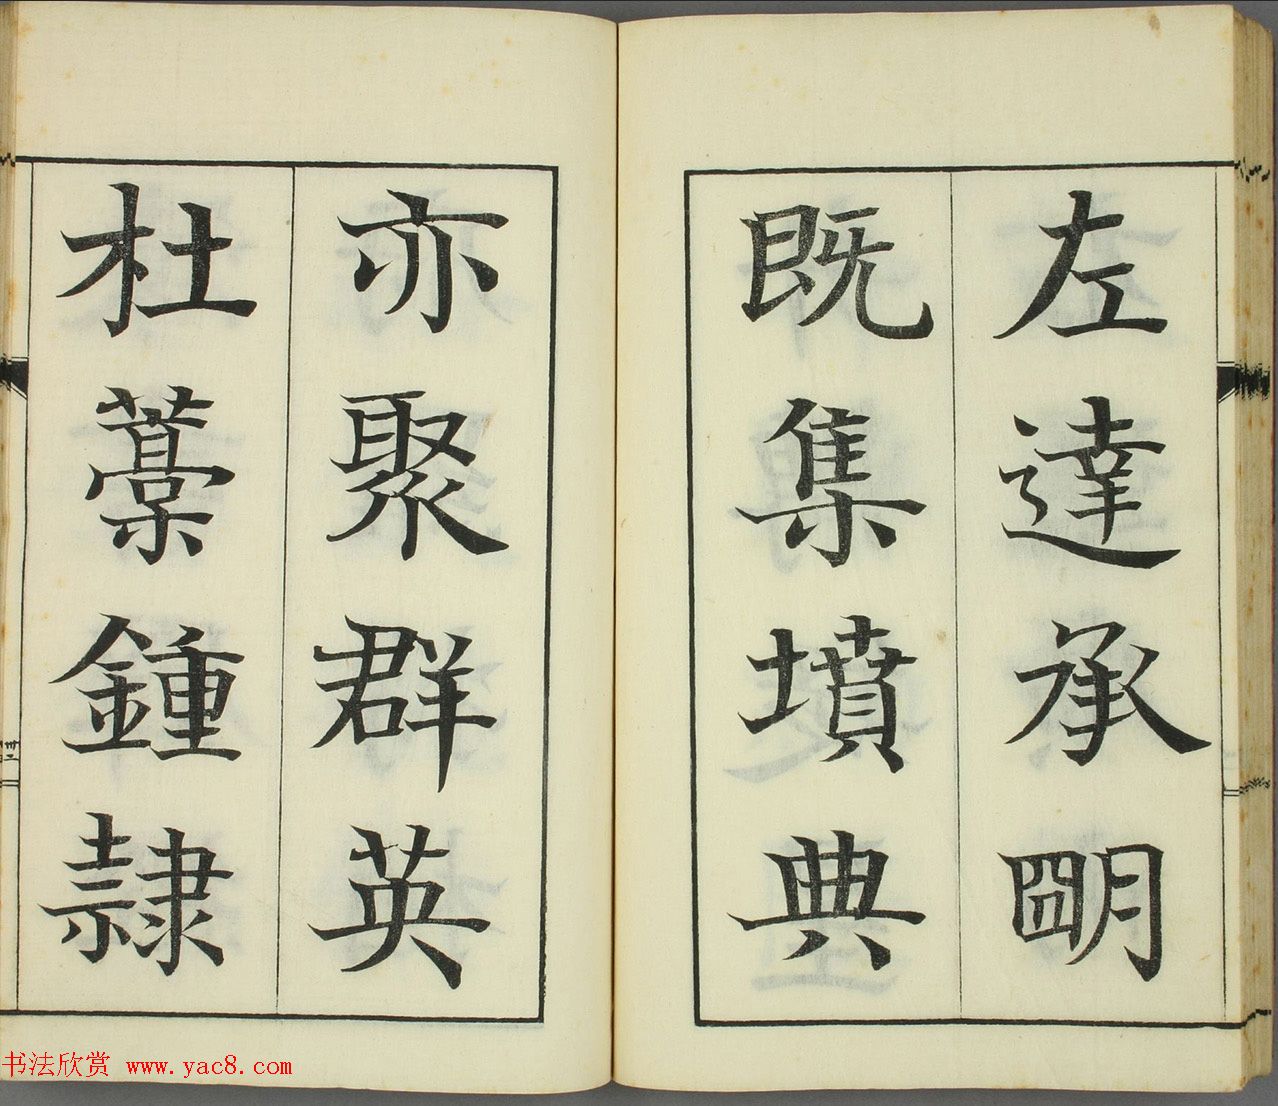 左達承朙
既集墳典
亦聚群英
杜藁鍾隷
卅二
书法欣赏 www.yac8.com